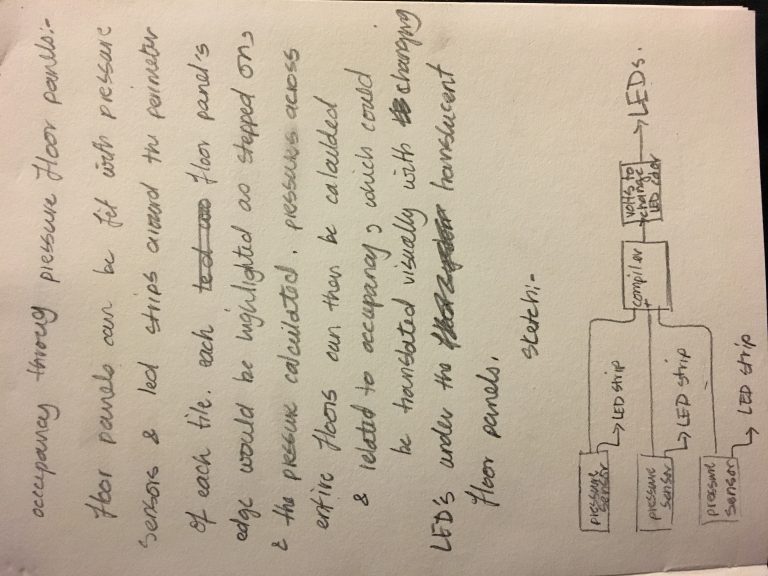 occupancy throug pressure floor panels:-
floor panels can be fit with pressure
sensors & led strips around the perimeter
of each tile. each floor panel's
edge would be highlighted as stepped on,
& the pressure calculated. pressures across
entire floors can then be calculted
& related to occupancy, which could
be translated visually with changing
LED's under the translucent
floor panels.
sketch:-
pressure
sensor
→ LED strip
pressure
sensor
→ LED strip
pressure
sensor
→ LED strip
compiler
+
volts to
change
LED color
→ LEDs.